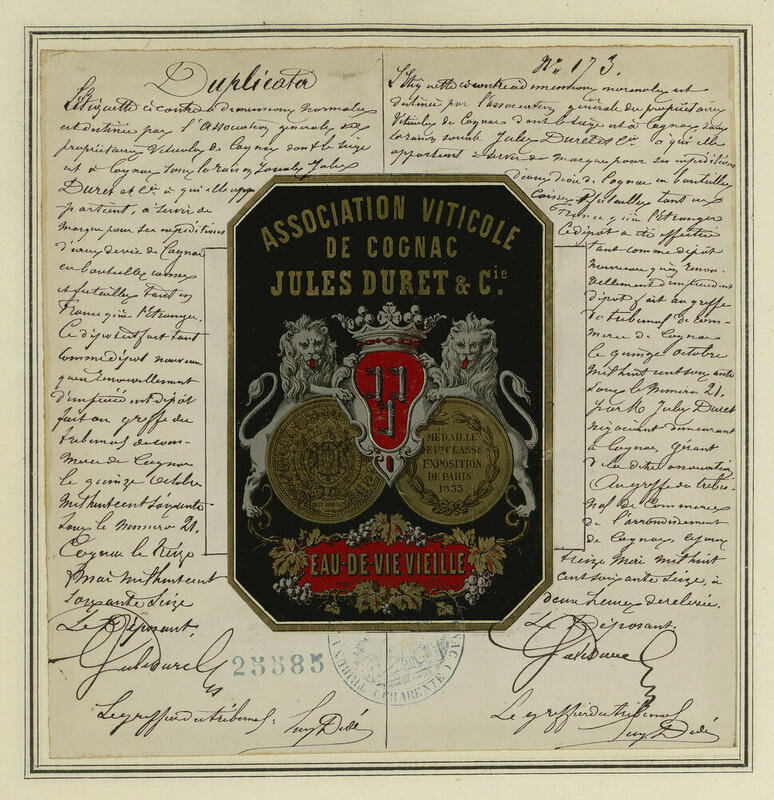 Duplicata
L'Etiquette ci contre à dimensions normales
est destinée par l'Association générale des
propriétaires Viticoles de Cognac dont le Siège
est à Cognac sous la raison sociale Jules
Duret et Cie à qui elle app
partient, à servir de
marque pour ses expéditions
d'eaux de vie de Cognac
en bouteilles caisses
et futailles tant en
France qu'à l'Etranger.
Ce dépot est fait tant
comme dépot nouveau
qu'en renouvellement
d'un précédent dépot
fait au greffe du
tribunal de com-
merce de Cognac
le quinze Octobre
mil huit cent soixante
sous le Numero 21.
Cognac le treize
mai mil huit cent
soixante seize
Le Déposant,
Jules Duret
Le greffier du tribunal:
Nº 173.
L'Etiquette ci contre à dimensions normales est
destinée par l'association générale des propriétaires
Viticoles de Cognac dont le siège est à Cognac sous
la raison sociale Jules Duret et Cie. à qui elle
appartient à servir de marque pour ses expéditions
d'eaux de vie de Cognac en bouteilles
Caisses & futailles tant en
France qu'à l'étranger
Ce dépot a été effectué
tant comme dépôt
nouveau qu'en renou-
vellement d'un précédent
dépot fait au greffe
du tribunal de com-
merce de Cognac
le quinze octobre
mil huit cent soixante
sous le Numero 21.
par M. Jules Duret
négociant demeurant
à Cognac, gérant
de la dite association
Au greffe du tribu-
nal de Commerce
de l'arrondissement
de Cognac, ce jour
treize Mai mil huit
cent soixante seize, à
deux heures de relevée.
Le Déposant.
Jules Duret
Le greffier du tribunal
ASSOCIATION VITICOLE
DE COGNAC
JULES DURET & Cie.
MÉDAILLE
DE 1re CLASSE
EXPOSITION
DE PARIS
1855
EAU-DE-VIE VIEILLE
25585
CHARENTE